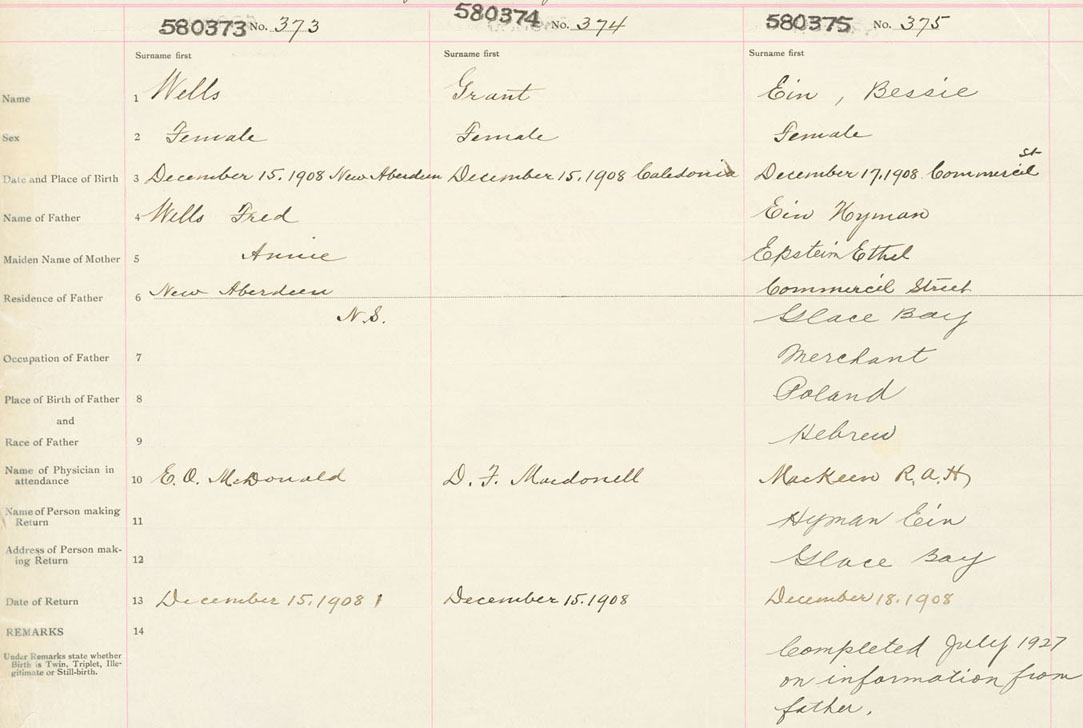 580373 No. 373 580374 No. 374 580375 No. 375
Surname first Surname first Surname first
Name 1 Wells Grant Ein , Bessie
Sex 2 Female Female Female
St
Date and Place of Birth 3 December 15. 1908 New Aberdeen December 15, 1908 Caledonia December 17, 1908 Commercil
Name of Father 4 Wells Fred Ein Hyman
Maiden Name of Mother 5 Annie Epstein Ethel
Residence of Father 6 New Aberdeen Commercil Street
N.S. Glace Bay
Occupation of Father 7 Merchant
Place of Birth of Father 8 Poland
and
Race of Father 9 Hebrew
Name of Physician in
attendance 10 E. O. McDonald D. F. Macdonell MacKeen R. A. H,
Name of Person making
Return 11 Hyman Ein
Address of Person mak-
ing Return 12 Glace Bay
Date of Return 13 December 15. 1908 December 15. 1908 December 18. 1908
REMARKS 14
Under Remarks state whether
Birth is Twin, Triplet, Ille-
gitimate or Still-birth.
Completed July 1927
on information from
father.